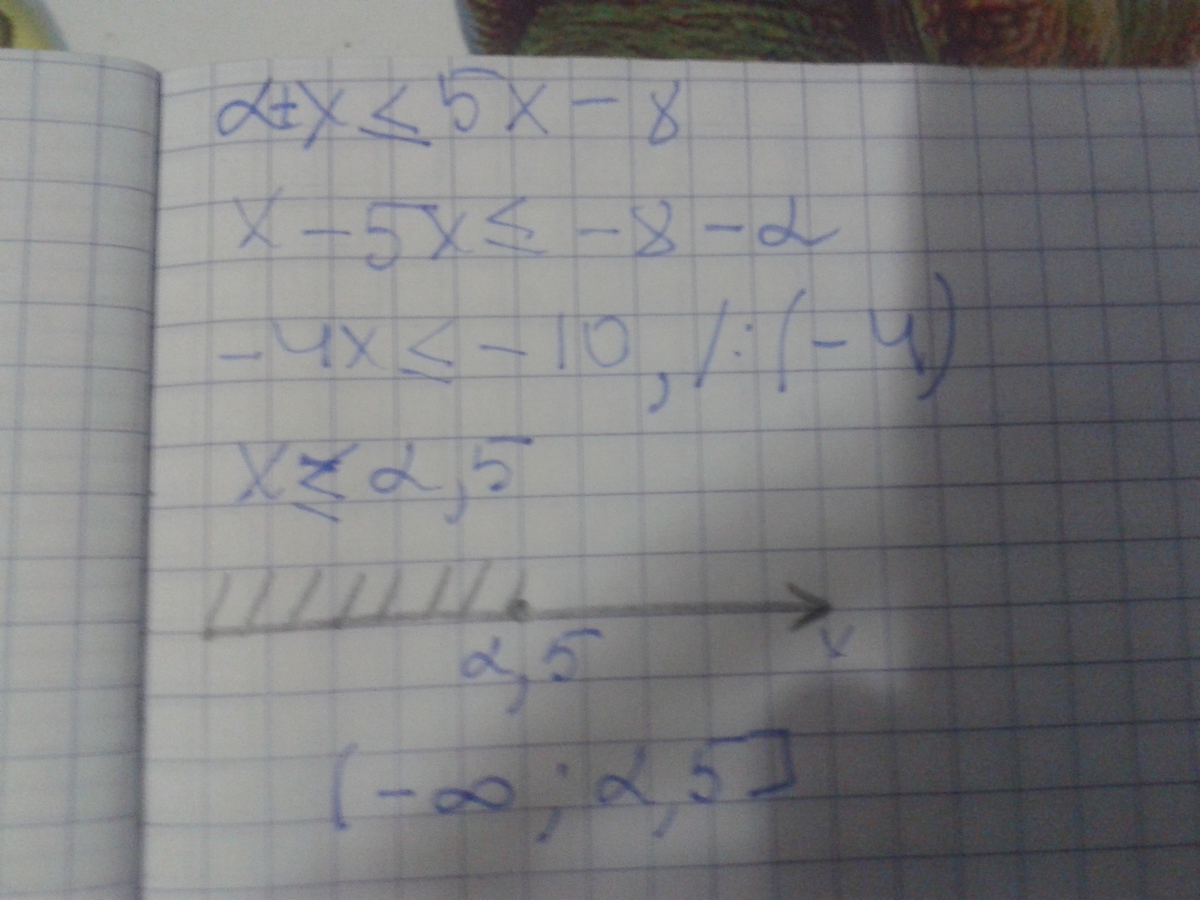 2+x ≤ 5x - 8
x - 5x ≤ -8 - 2
-4x ≤ -10, /:(-4)
x ≤ 2,5
2,5 x
(-∞; 2,5]